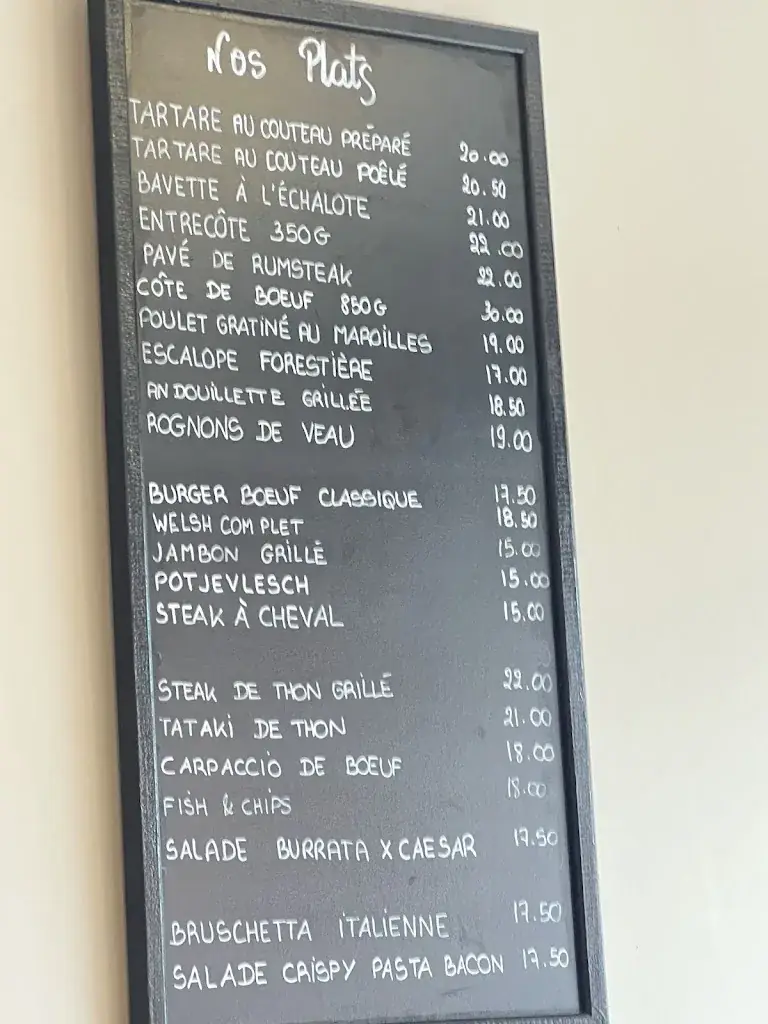 Nos Plats
TARTARE AU COUTEAU PRÉPARÉ 20.00
TARTARE AU COUTEAU POÊLÉ 20.50
BAVETTE À L'ÉCHALOTE 21.00
ENTRECÔTE 350G 22.00
PAVÉ DE RUMSTEAK 22.00
CÔTE DE BOEUF 850G 30.00
POULET GRATINÉ AU MAROILLES 19.00
ESCALOPE FORESTIÈRE 17.00
ANDOUILLETTE GRILLÉE 18.50
ROGNONS DE VEAU 19.00
BURGER BOEUF CLASSIQUE 17.50
WELSH COMPLET 18.50
JAMBON GRILLÉ 15.00
POTJEVLESCH 15.00
STEAK À CHEVAL 15.00
STEAK DE THON GRILLÉ 22.00
TATAKI DE THON 21.00
CARPACCIO DE BOEUF 18.00
FISH & CHIPS 18.00
SALADE BURRATA X CAESAR 17.50
BRUSCHETTA ITALIENNE 17.50
SALADE CRISPY PASTA BACON 17.50